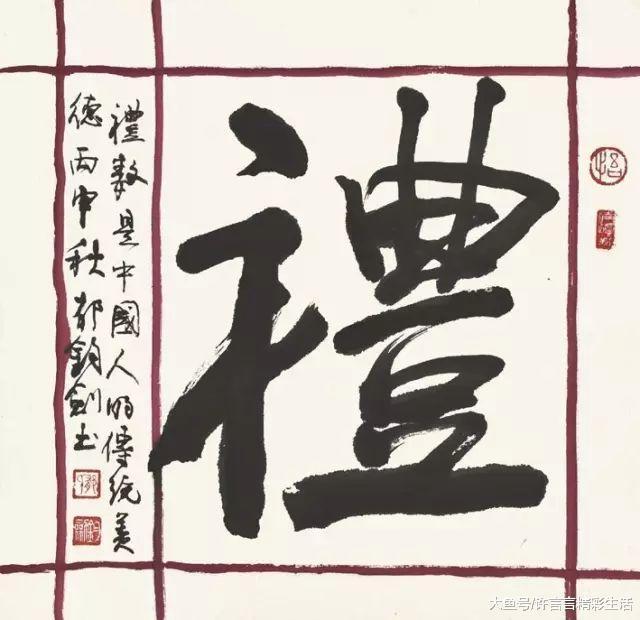 禮
禮数是中國人的傳統美
德丙申秋郁鈞劍书
大鱼号/许言言精彩生活